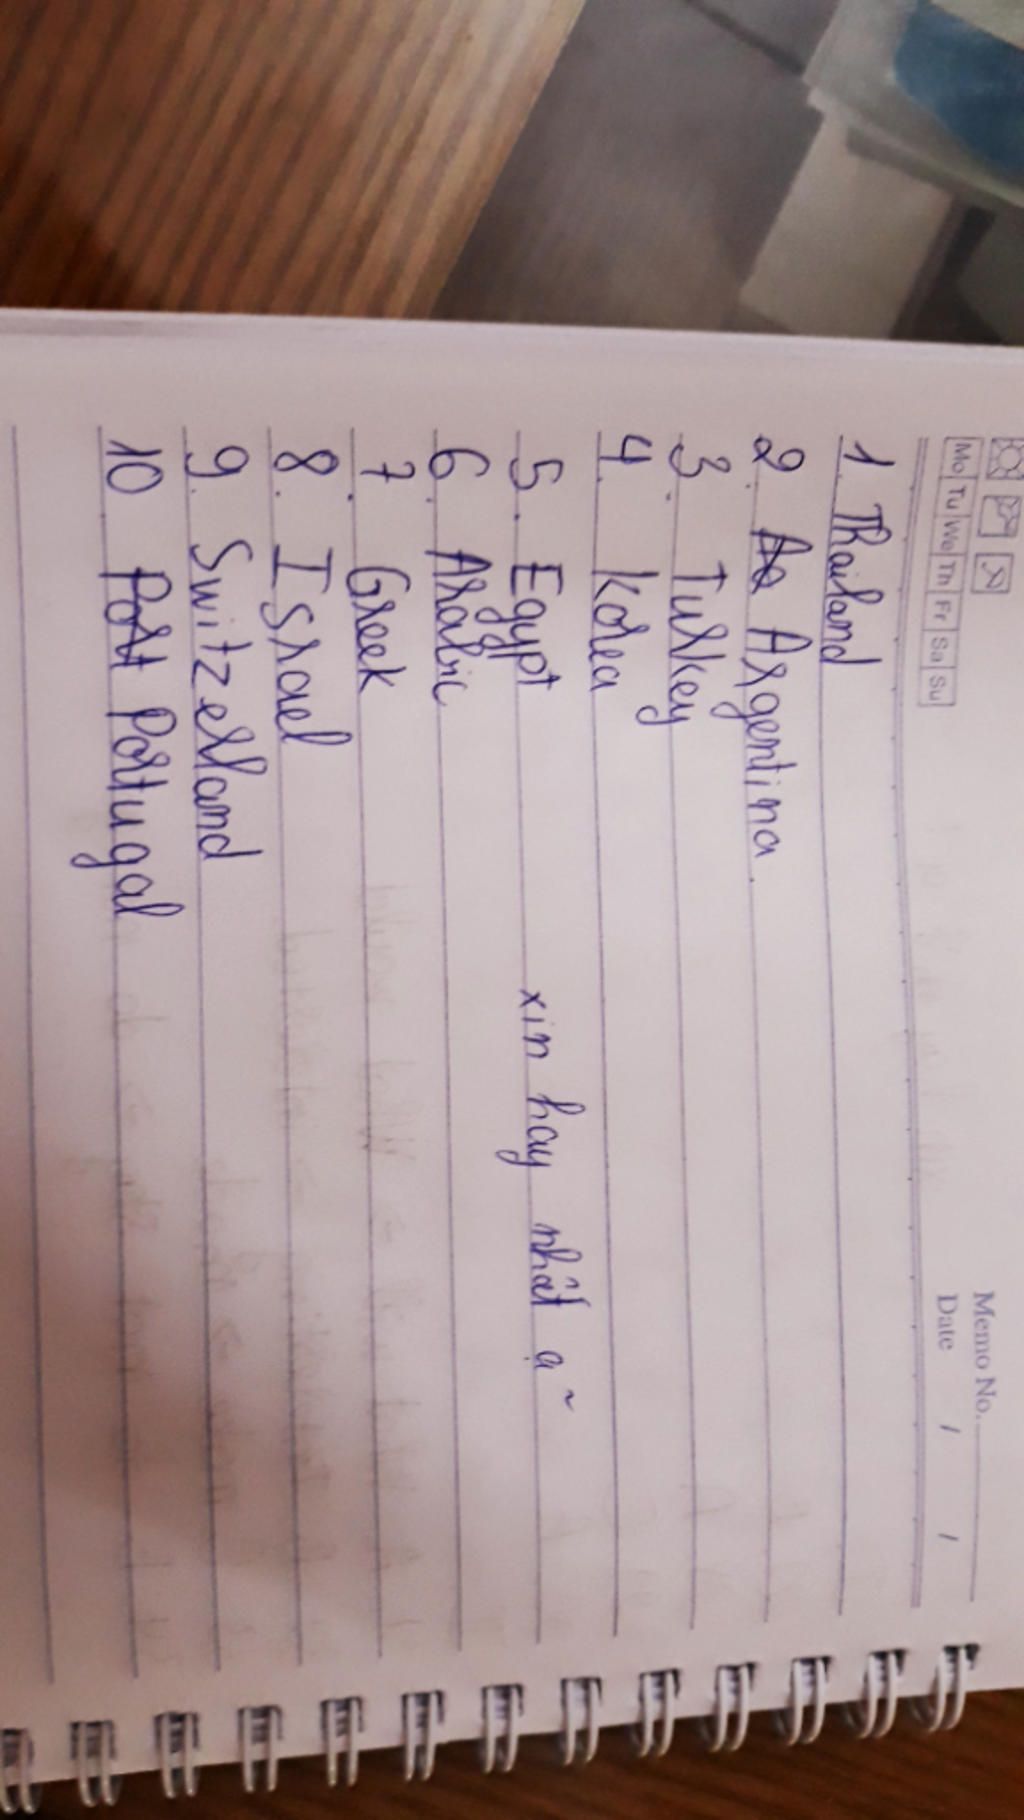 Memo No.
Mo Tu We Th Fr Sa Su
Date / /
1. Thailand
2. Aa Argentina.
3. Turkey
4. Korea
5. Egypt
xin hay nhất ạ ~
6. Arabic
7. Greek
8. Israel
9. Switzerland
10 Port Portugal